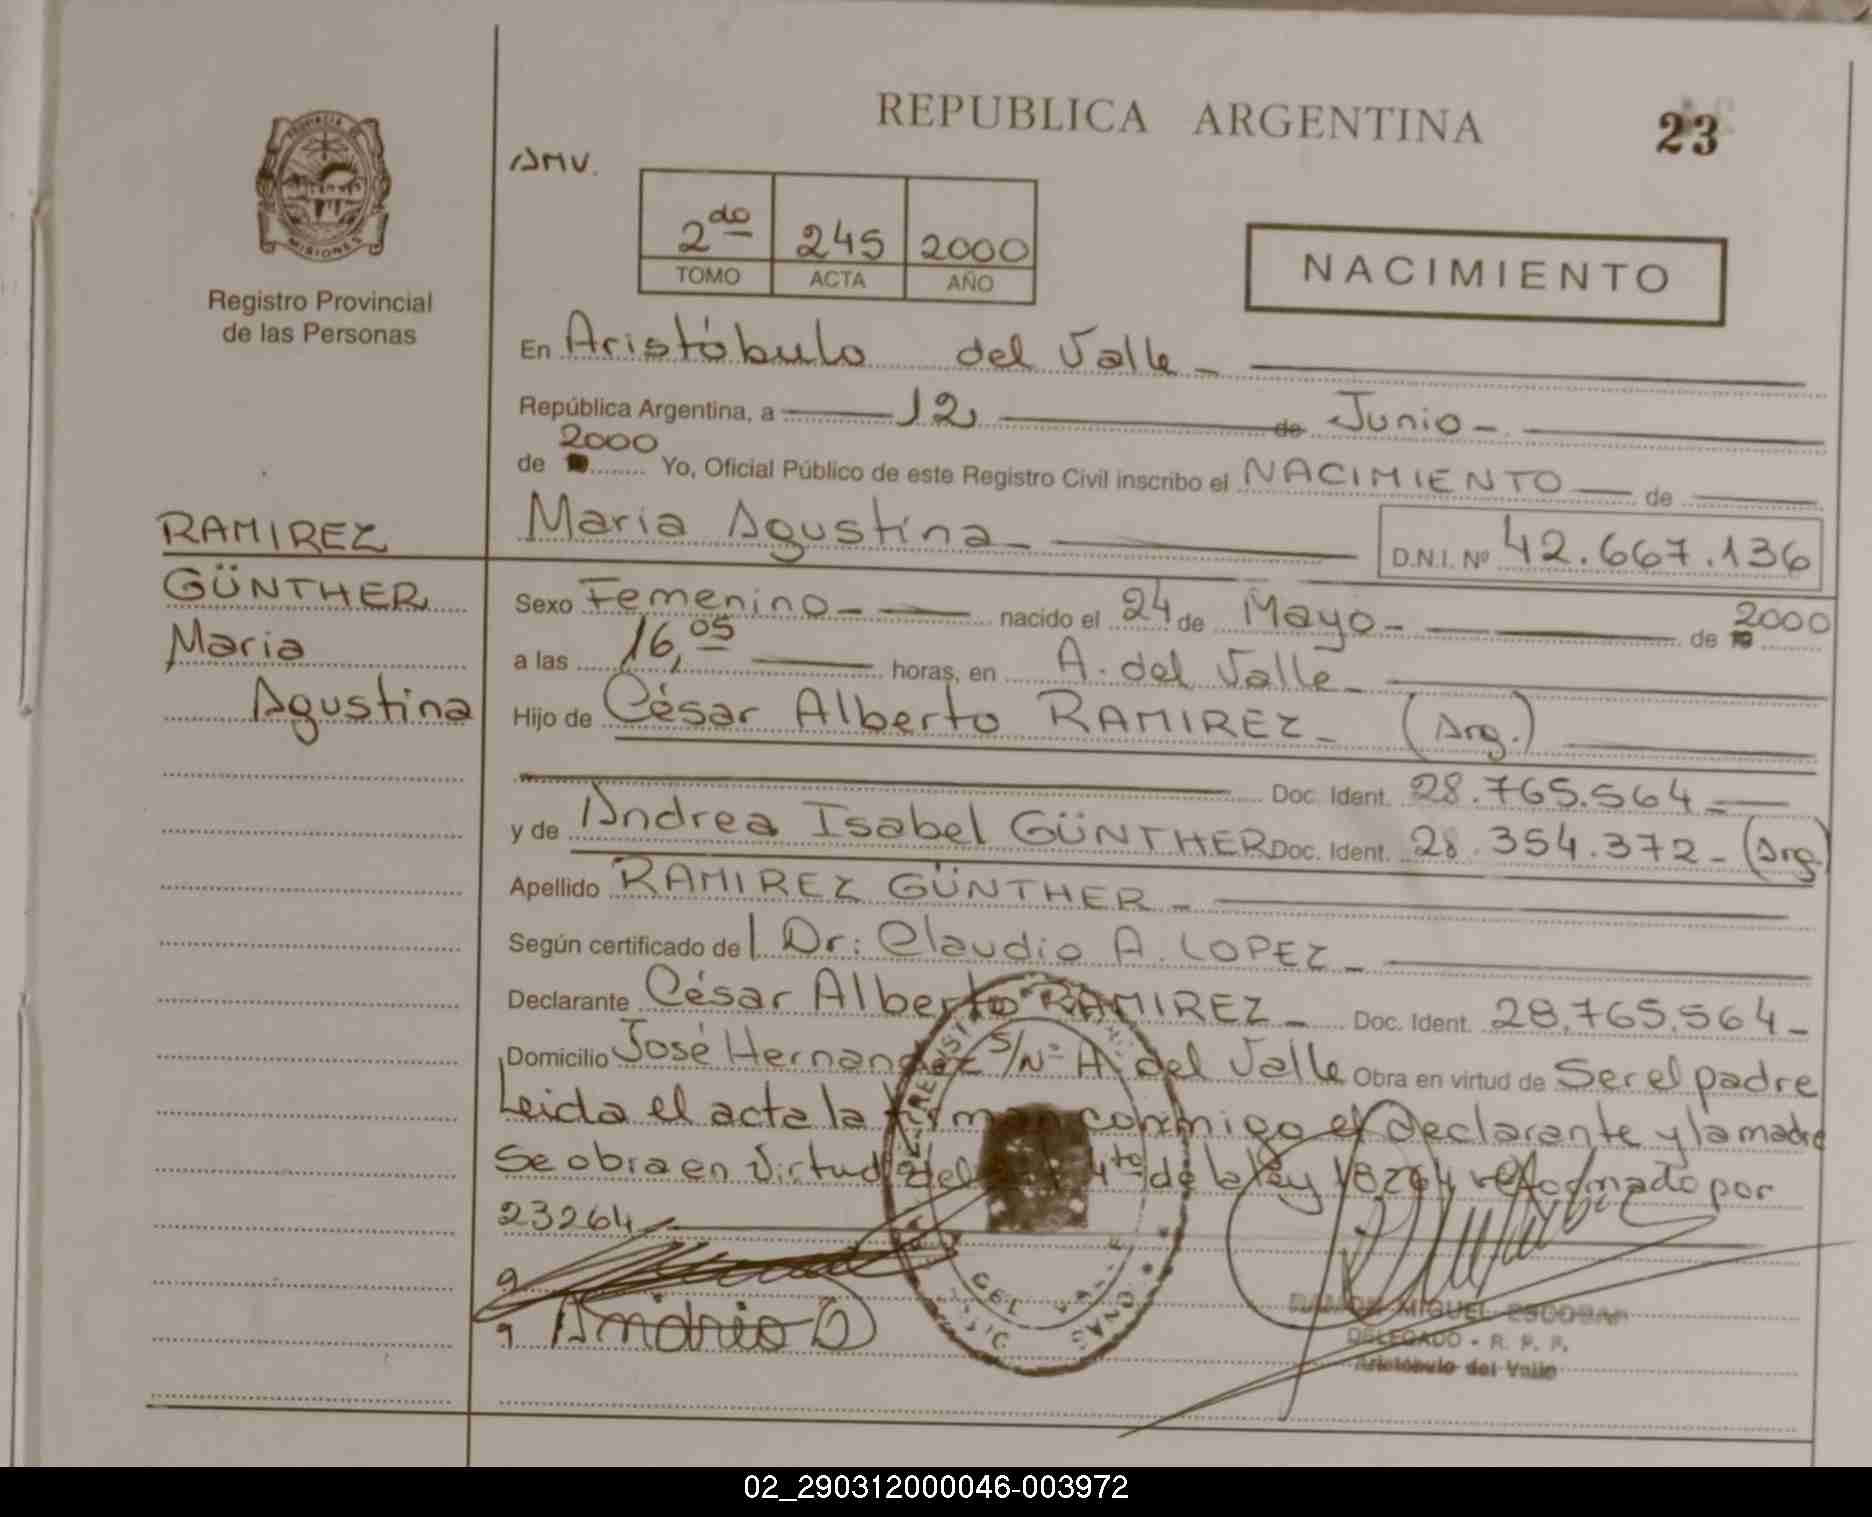 REPUBLICA ARGENTINA
23
PROVINCIA DE
MISIONES
Registro Provincial
de las Personas
AMV.
2do 245 2000
TOMO ACTA AÑO
NACIMIENTO
En Aristóbulo del Valle -
República Argentina, a 12 de Junio -
de 2000 Yo, Oficial Público de este Registro Civil inscribo el NACIMIENTO de
Maria Agustina - D.N.I. Nº 42.667.136
RAMIREZ
GÜNTHER
Maria
Agustina
Sexo Femenino - nacido el 24 de Mayo - de 2000
a las 16,05 horas, en A. del Valle -
Hijo de César Alberto RAMIREZ - (Arg.)
Doc. Ident. 28.765.564 -
y de Andrea Isabel GÜNTHER Doc. Ident. 28.354.372 - (Arg.)
Apellido RAMIREZ GÜNTHER -
Según certificado del Dr: Claudio A. LOPEZ -
Declarante César Alberto RAMIREZ - Doc. Ident. 28.765.564 -
Domicilio José Hernandez S/Nº A. del Valle Obra en virtud de Ser el padre
Leida el acta la firman conmigo el declarante y la madre
Se obra en Virtud del 4to de la ley 18264 reformado por
23264
DEL VALLE
RAMON MIGUEL ESCOBAR
DELEGADO - R. P. P.
Aristóbulo del Valle
02_290312000046-003972